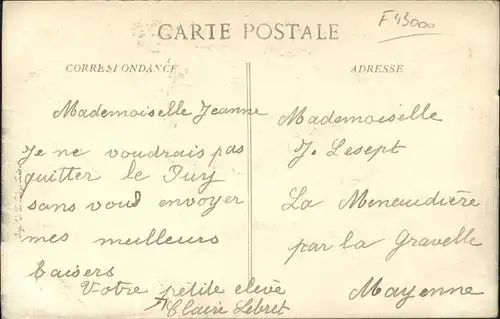 F43000
CARTE POSTALE
CORRESPONDANCE
ADRESSE
Mademoiselle Jeanne
Je ne voudrais pas
quitter le Puy
sans vous envoyer
mes meilleurs
baisers
Votre petite elève
Claire Lebret
Mademoiselle
J. Lesept
La Menaudière
par la Gravelle
Mayenne